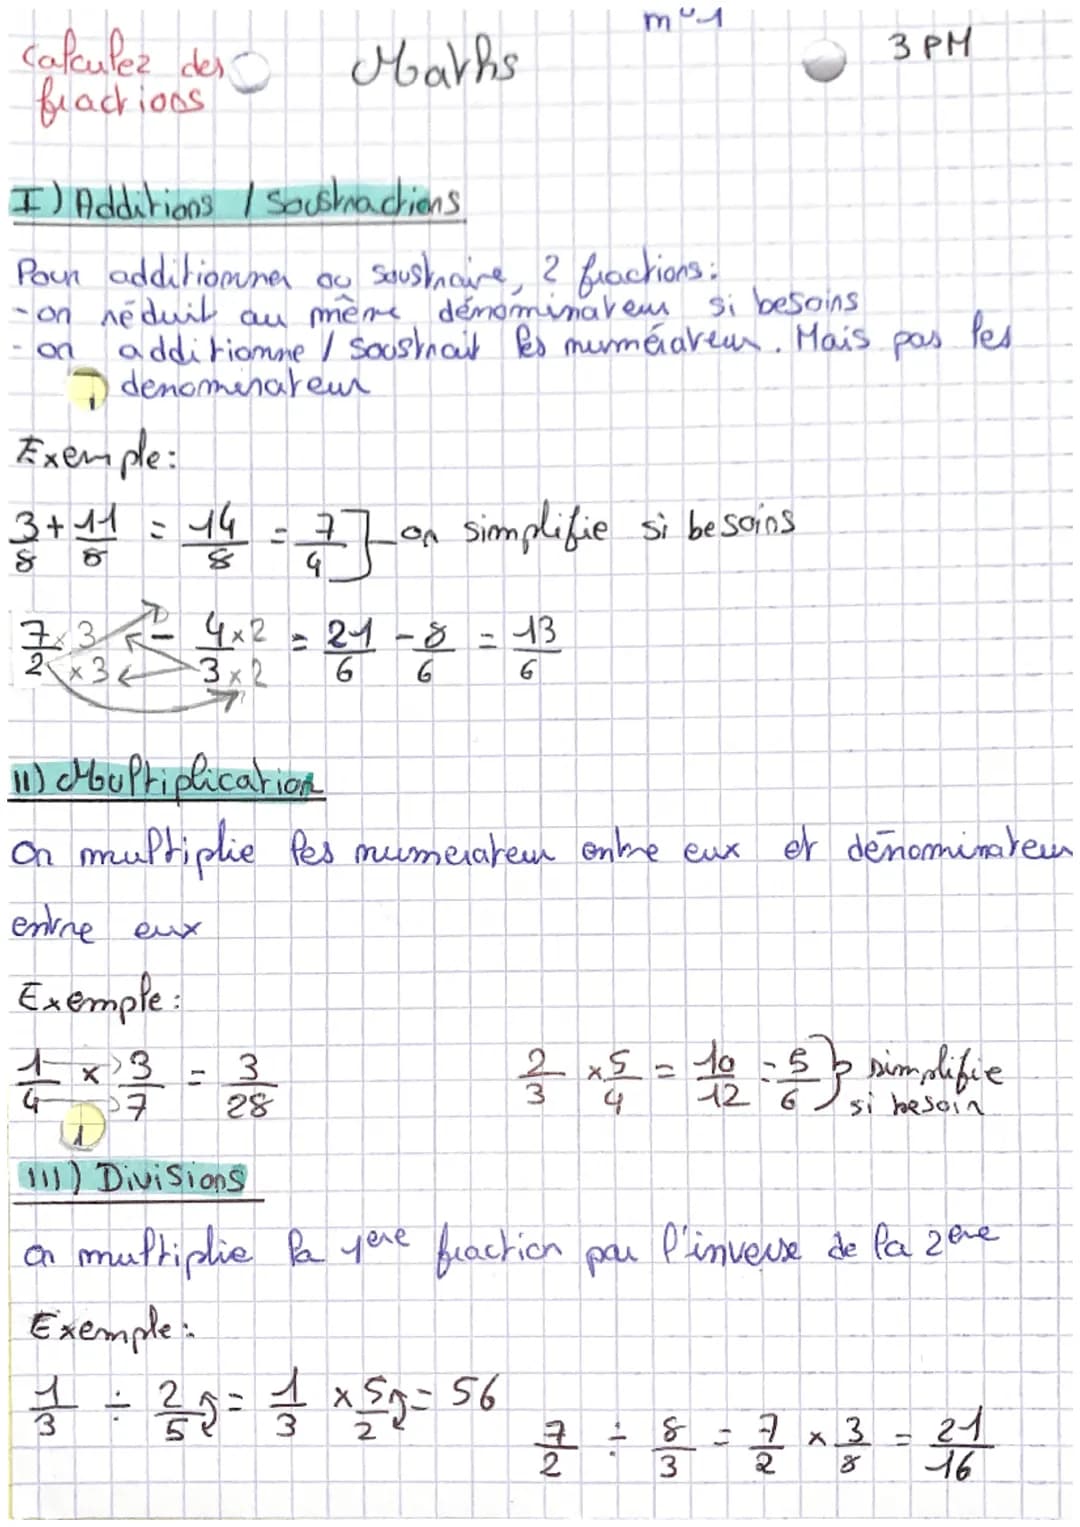 m°1
Calculez des Maths 3 PM
fractions
I) Additions / Soustractions
Pour additionner ou soustraire, 2 fractions:
- on réduit au même dénominateur si besoins
- on additionne / soustrait les numérateur. Mais pas les
! denominateur
Exemple:
3/8 + 11/8 = 14/8 = 7/4 ] on simplifie si besoins
7×3/2×3 - 4×2/3×2 = 21/6 - 8/6 = 13/6
II) Multiplication
On multiplie les numerateur entre eux et dénominateur
entre eux
Exemple:
1/4 × 3/7 = 3/28
2/3 × 5/4 = 10/12 = 5/6 } simplifie
si besoin
!
III) Divisions
On multiplie la 1ere fraction par l'inverse de la 2ere
Exemple:
1/3 ÷ 2/5 = 1/3 × 5/2 = 56
7/2 ÷ 8/3 = 7/2 × 3/8 = 21/16